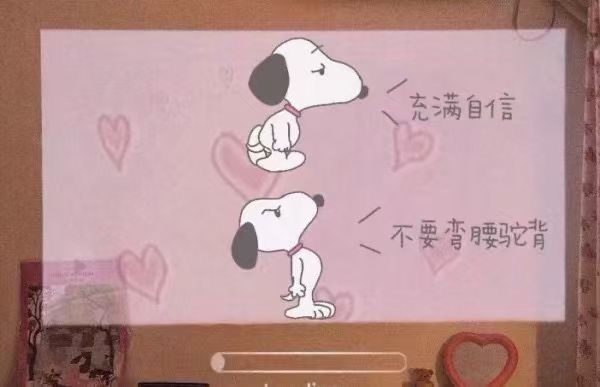 充满自信
不要弯腰驼背